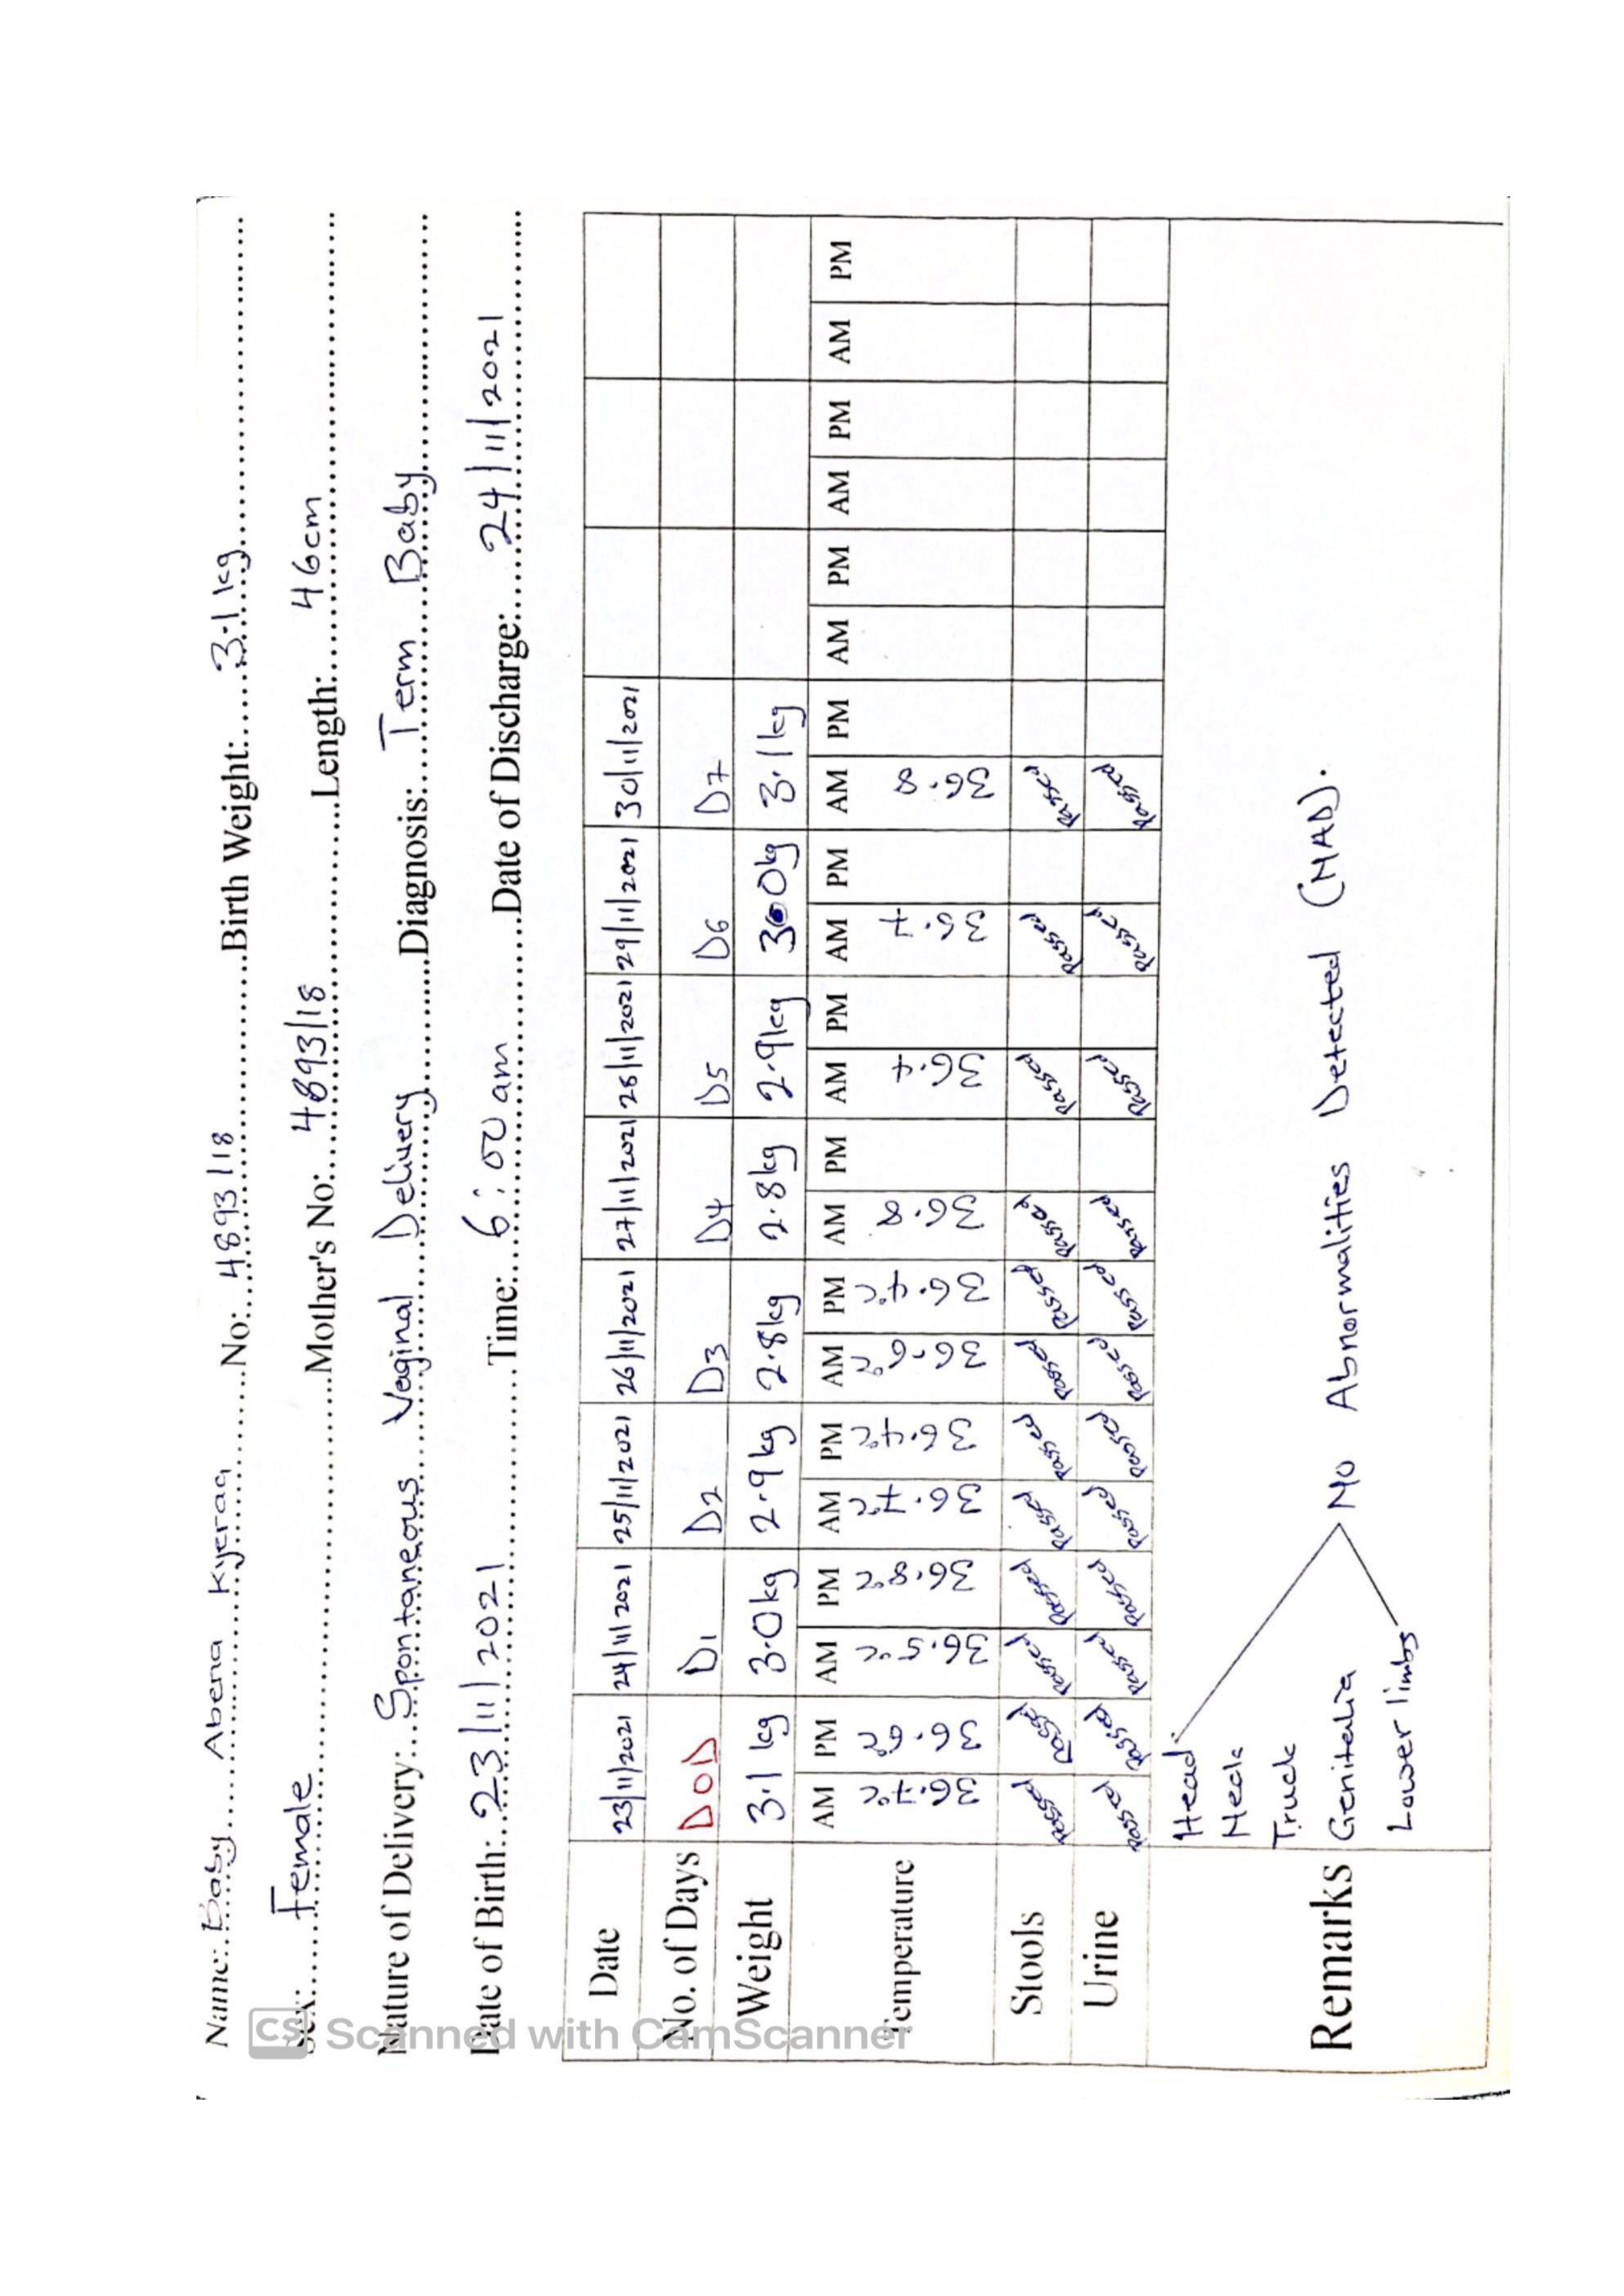 Name: Baby Abena Kyeraa No: 4893/18 Birth Weight: 3.1kg
Sex: Female Mother's No: 4893/18 Length: 46cm
Nature of Delivery: Spontaneous Vaginal Delivery Diagnosis: Term Baby
Date of Birth: 23/11/2021 Time: 6:00 am Date of Discharge: 24/11/2021
Date 23/11/2021 24/11/2021 25/11/2021 26/11/2021 27/11/2021 28/11/2021 29/11/2021 30/11/2021
No. of Days DOD D1 D2 D3 D4 D5 D6 D7
Weight 3.1 kg 3.0kg 2.9kg 2.8kg 2.8kg 2.9kg 3.0kg 3.1kg
AM PM AM PM AM PM AM PM AM PM AM PM AM PM AM PM AM PM AM PM AM PM
Temperature 36.7°C 36.6°C 36.5°C 36.8°C 36.7°C 36.4°C 36.6°C 36.4°C 36.8 36.4 36.7 36.8
Stools Passed Passed Passed Passed Passed Passed Passed Passed Passed Passed Passed Passed
Urine Passed Passed Passed Passed Passed Passed Passed Passed Passed Passed Passed Passed
Remarks
Head
Neck
Truck
Genitalia No Abnormalities Detected (NAD).
Lower limbs
CS Scanned with CamScanner